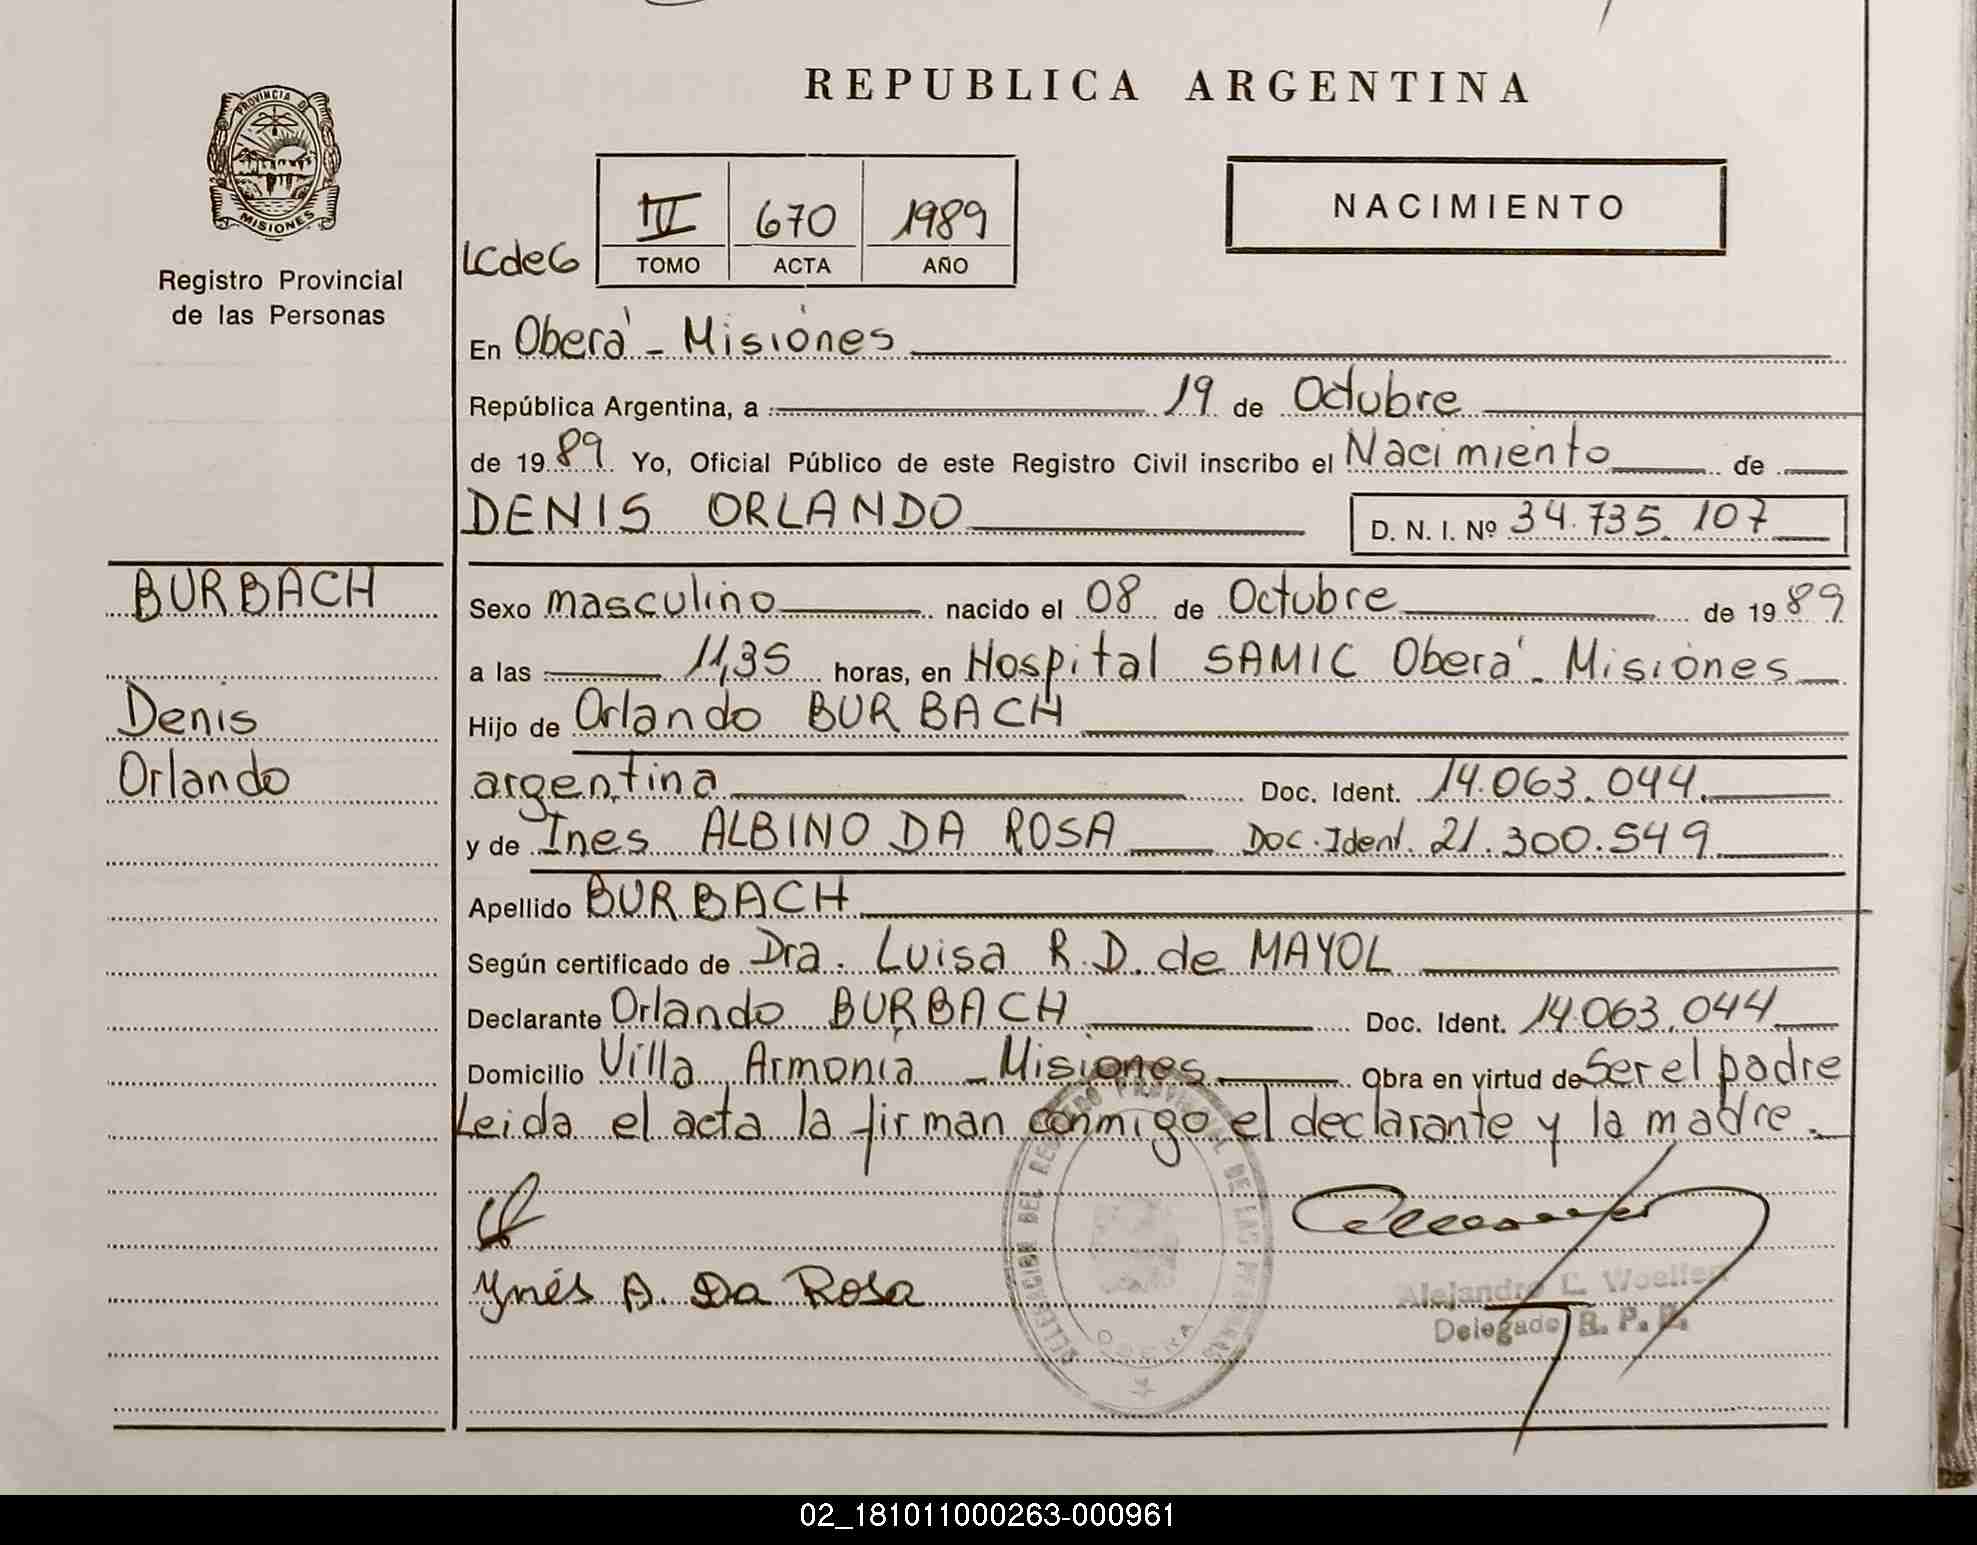 REPUBLICA ARGENTINA
PROVINCIA DE
MISIONES
Registro Provincial
de las Personas
LCde6
IV 670 1989
TOMO ACTA AÑO
NACIMIENTO
En Oberá - Misiones
República Argentina, a 19 de Octubre
de 1989 Yo, Oficial Público de este Registro Civil inscribo el Nacimiento de
DENIS ORLANDO D. N. I. Nº 34.735.107
BURBACH
Denis
Orlando
Sexo masculino nacido el 08 de Octubre de 1989
a las 11,35 horas, en Hospital SAMIC Oberá - Misiones
Hijo de Orlando BURBACH
argentina Doc. Ident. 14.063.044
y de Ines ALBINO DA ROSA Doc. Ident. 21.300.549
Apellido BURBACH
Según certificado de Dra. Luisa R.D. de MAYOL
Declarante Orlando BURBACH Doc. Ident. 14.063.044
Domicilio Villa Armonia - Misiones Obra en virtud de Ser el padre
Leida el acta la firman conmigo el declarante y la madre.
Ynés A. Da Rosa
DELEGACION DEL REGISTRO PROVINCIAL DE LAS PERSONAS
OBERA
Alejandro L.
Delegado R. P. P.
02_181011000263-000961